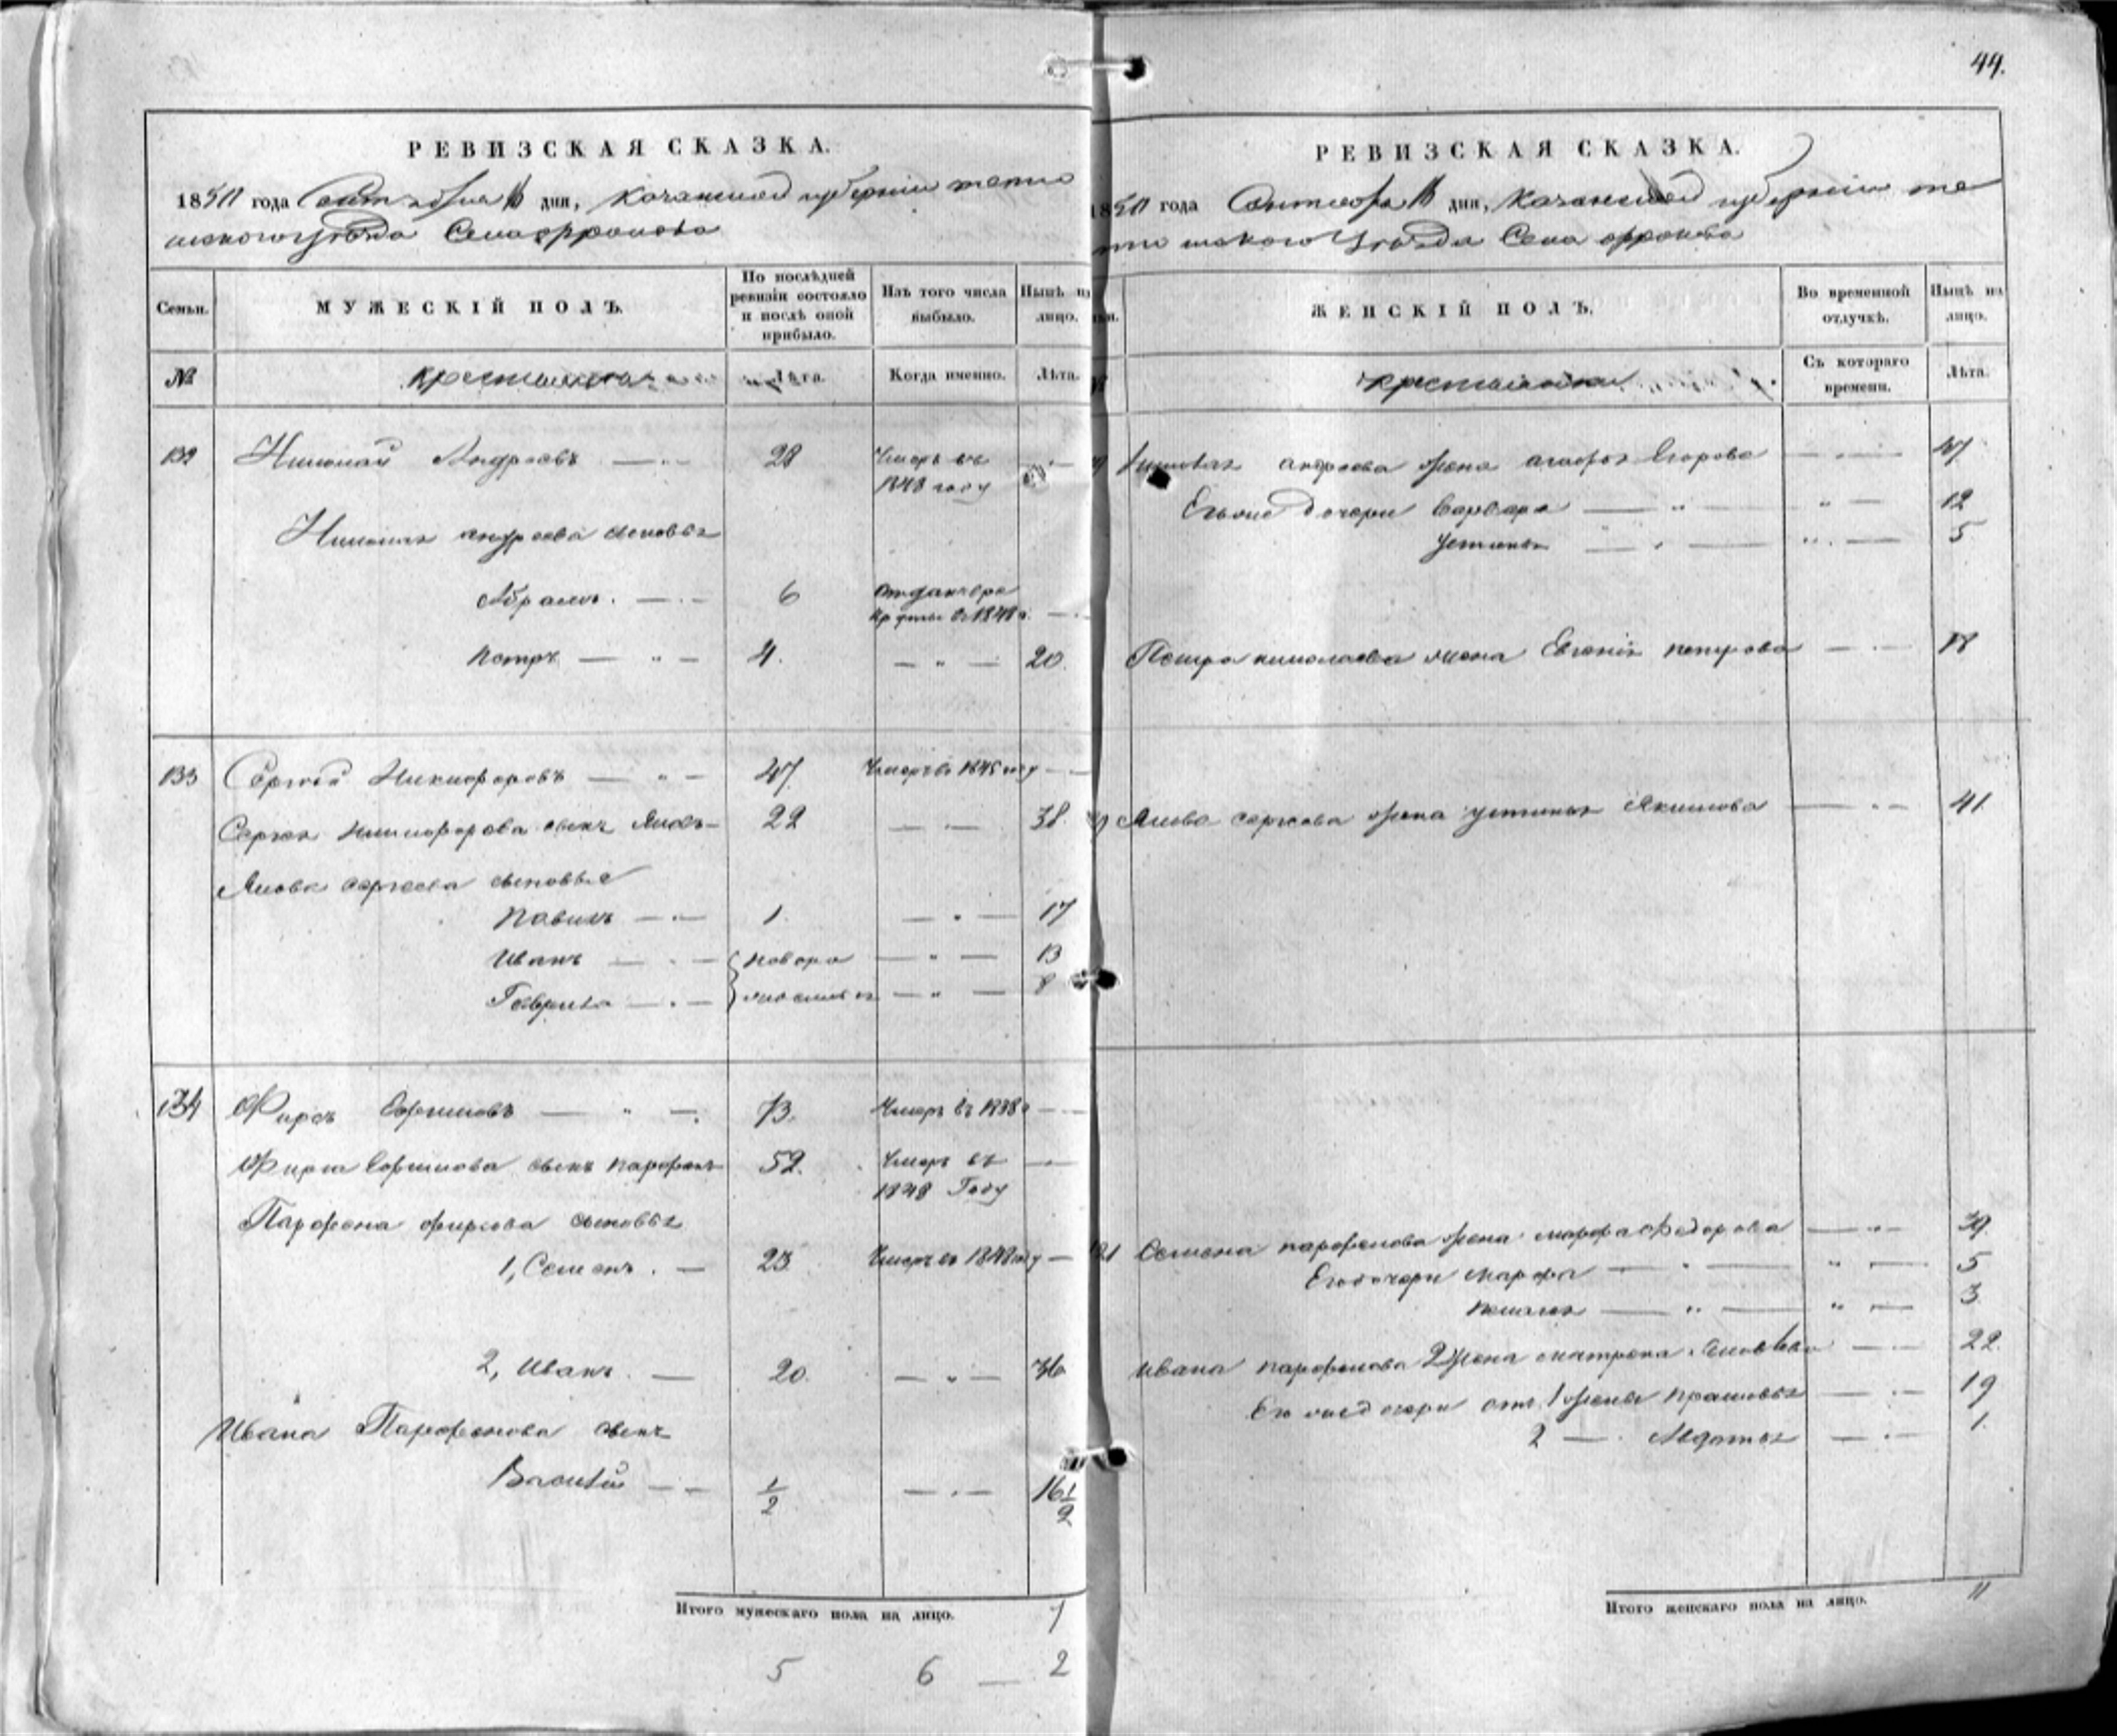 44.
РЕВИЗСКАЯ СКАЗКА.
1850 года Сентября дни, Казанской губерніи
уѣзда Села
Семьи.
МУЖЕСКІЙ ПОЛЪ.
По послѣдней ревизіи состояло и послѣ оной прибыло.
Изъ того числа выбыло.
Нынѣ на лицо.
№
Лѣта.
Когда именно.
Лѣта.
132 Николай Андреевъ 28 Умеръ въ
1848 году
Николая Андреева сыновья
Абрамъ. 6 Отданъ в
1848
Петръ 4. 20.
133 Сергей Никифоровъ 47 Умеръ въ 1845 году
Сергея Никифорова сынъ Яковъ 22 38.
Якова Сергеева сыновья
Павилъ 1. 17
Иванъ новоро 13
Гаврила 8
134 Фирсъ Ефимовъ 73. Умеръ въ 1838
Фирса Ефимова сынъ Парфенъ 52. Умеръ въ
1848 Году
Парфена Фирсова сыновья
1, Семенъ. 23 Умеръ въ 1848 году
2, Иванъ. 20. 36
Ивана Парфенова сынъ
Василій 1/2 16 1/2
Итого мужескаго пола на лицо. 7
5 6 — 2
РЕВИЗСКАЯ СКАЗКА.
1850 года Сентября дни, Казанской губерніи
уѣзда Села
ЖЕНСКІЙ ПОЛЪ.
Во временной отлучкѣ.
Нынѣ на лицо.
крестьянки
Съ котораго времени.
Лѣта.
Николая Андреева жена Егорова 47
Ево дочери Варвара 12
Устинья 5
Петра Николаева жена Евгенія Петрова 18
Якова Сергеева жена Устинья Якимова 41
Семена Парфенова жена Марфа Федорова 39.
Его дочери Марфа 5
3
Ивана Парфенова 2 жена Матрена 22.
дочери отъ 1 жены 19
2 — Авдотья 1.
Итого женскаго пола на лицо. 11